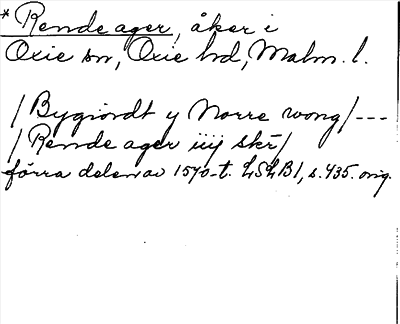 * Rende ager, åker i
Oxie sn, Oxie hd, Malm. l.
/Bygiordt y Norre vong/---
/Rende ager iiij skr/
förra delen av 1570-t. LSLB1, s. 435. orig.